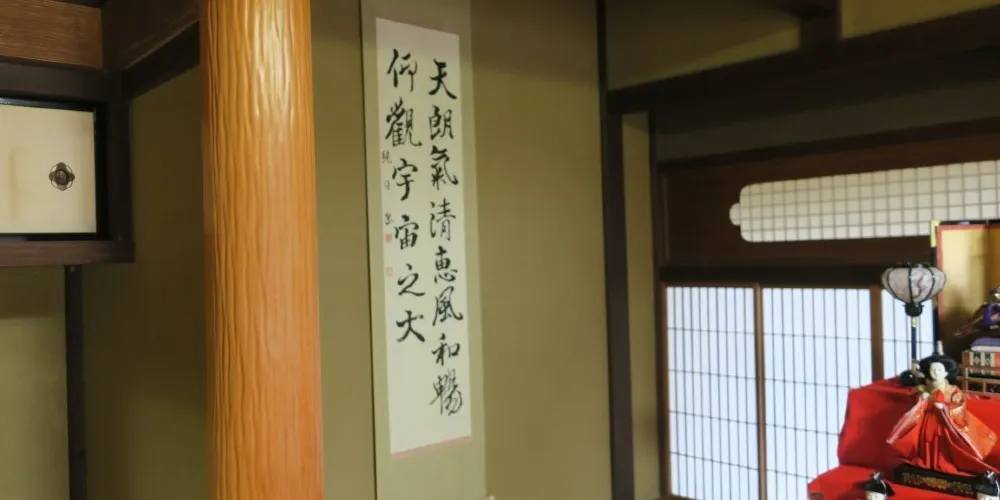 天朗氣清恵風和暢
仰觀宇宙之大